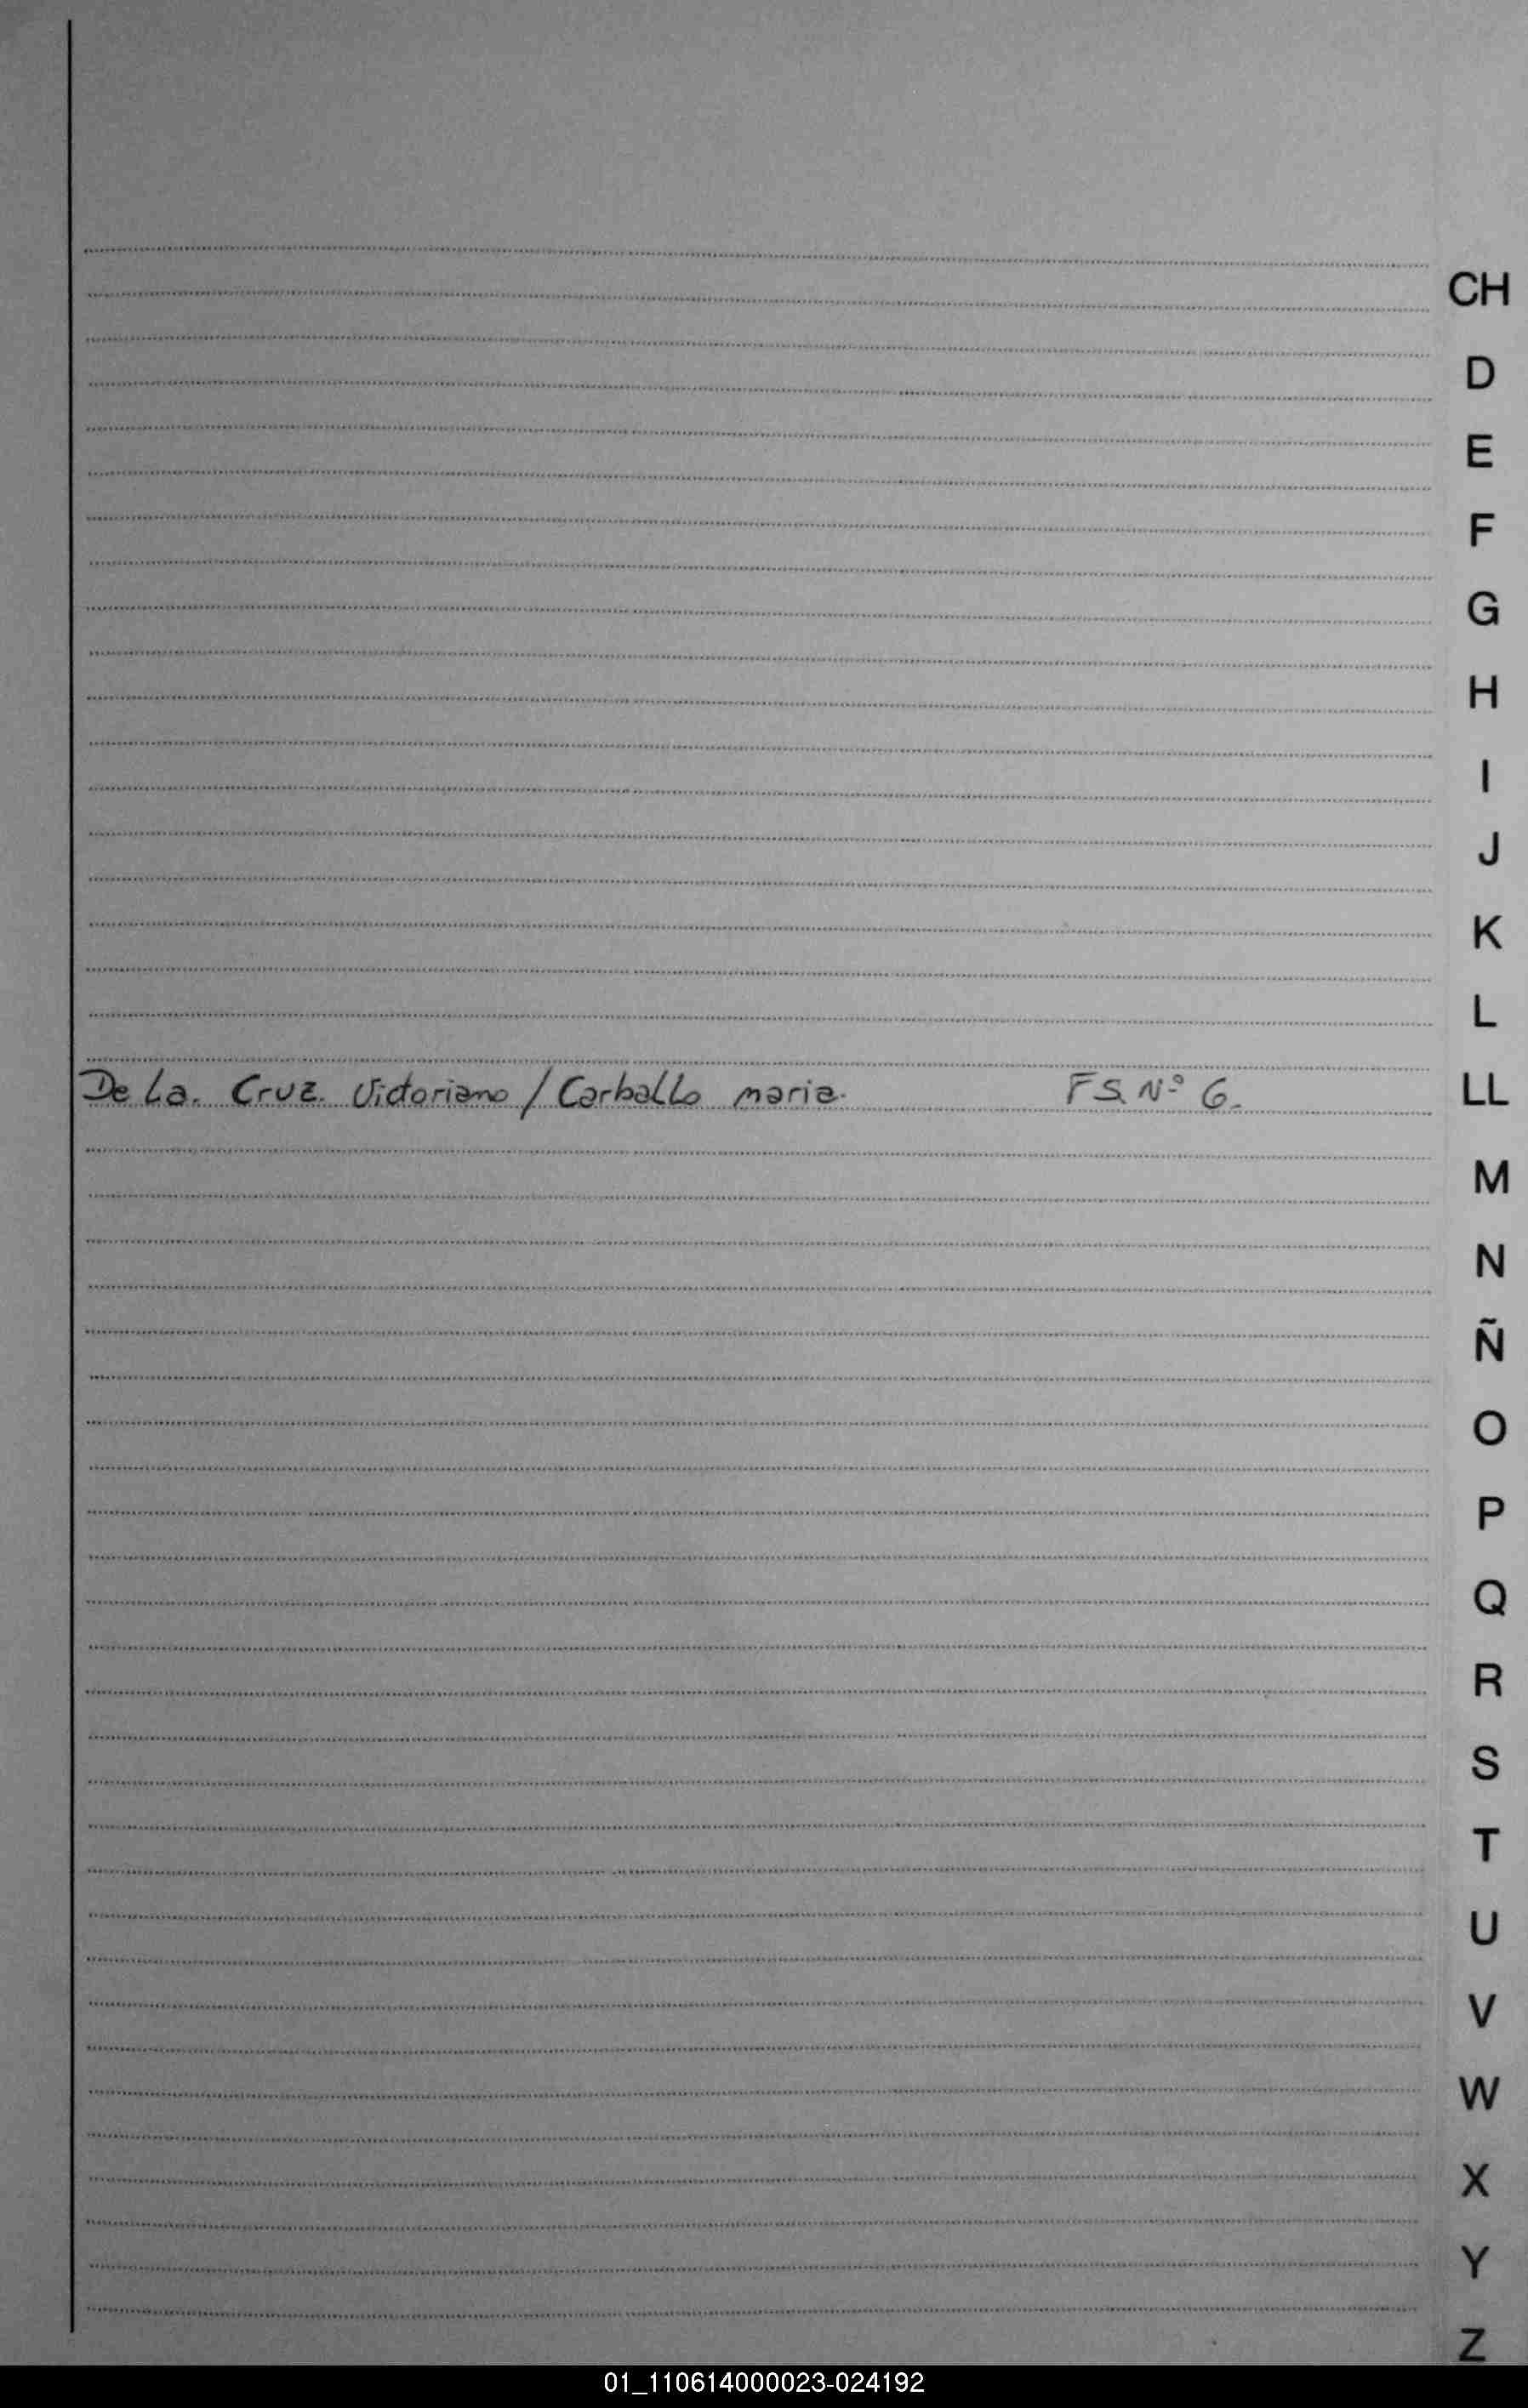 CH
D
E
F
G
H
I
J
K
L
De La. Cruz. Victoriano / Carballo maria. FS. Nº 6.
LL
M
N
Ñ
O
P
Q
R
S
T
U
V
W
X
Y
Z
01_110614000023-024192